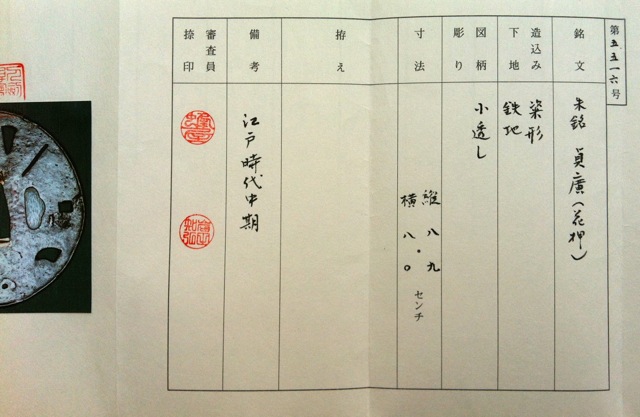 第五五一六号
銘文
朱銘 貞廣(花押)
造込み
下地
鉄地
図柄
彫り
小透し
寸法
縦 八・九
横 八・〇 センチ
拵え
備考
江戸時代中期
審査員
捺印